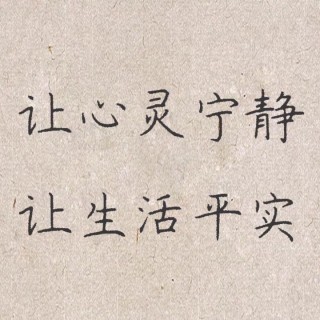 让心灵宁静
让生活平实